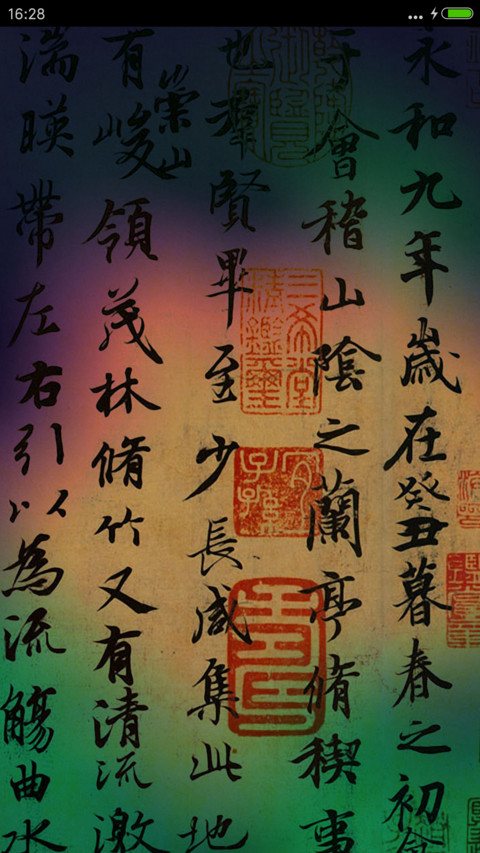 16:28
永和九年歲在癸丑暮春之初會
于會稽山陰之蘭亭脩稧事
也羣賢畢至少長咸集此地
有崇山峻領茂林脩竹又有清流激
湍暎帶左右引以為流觴曲水
三希堂精鑑璽
宜子孫